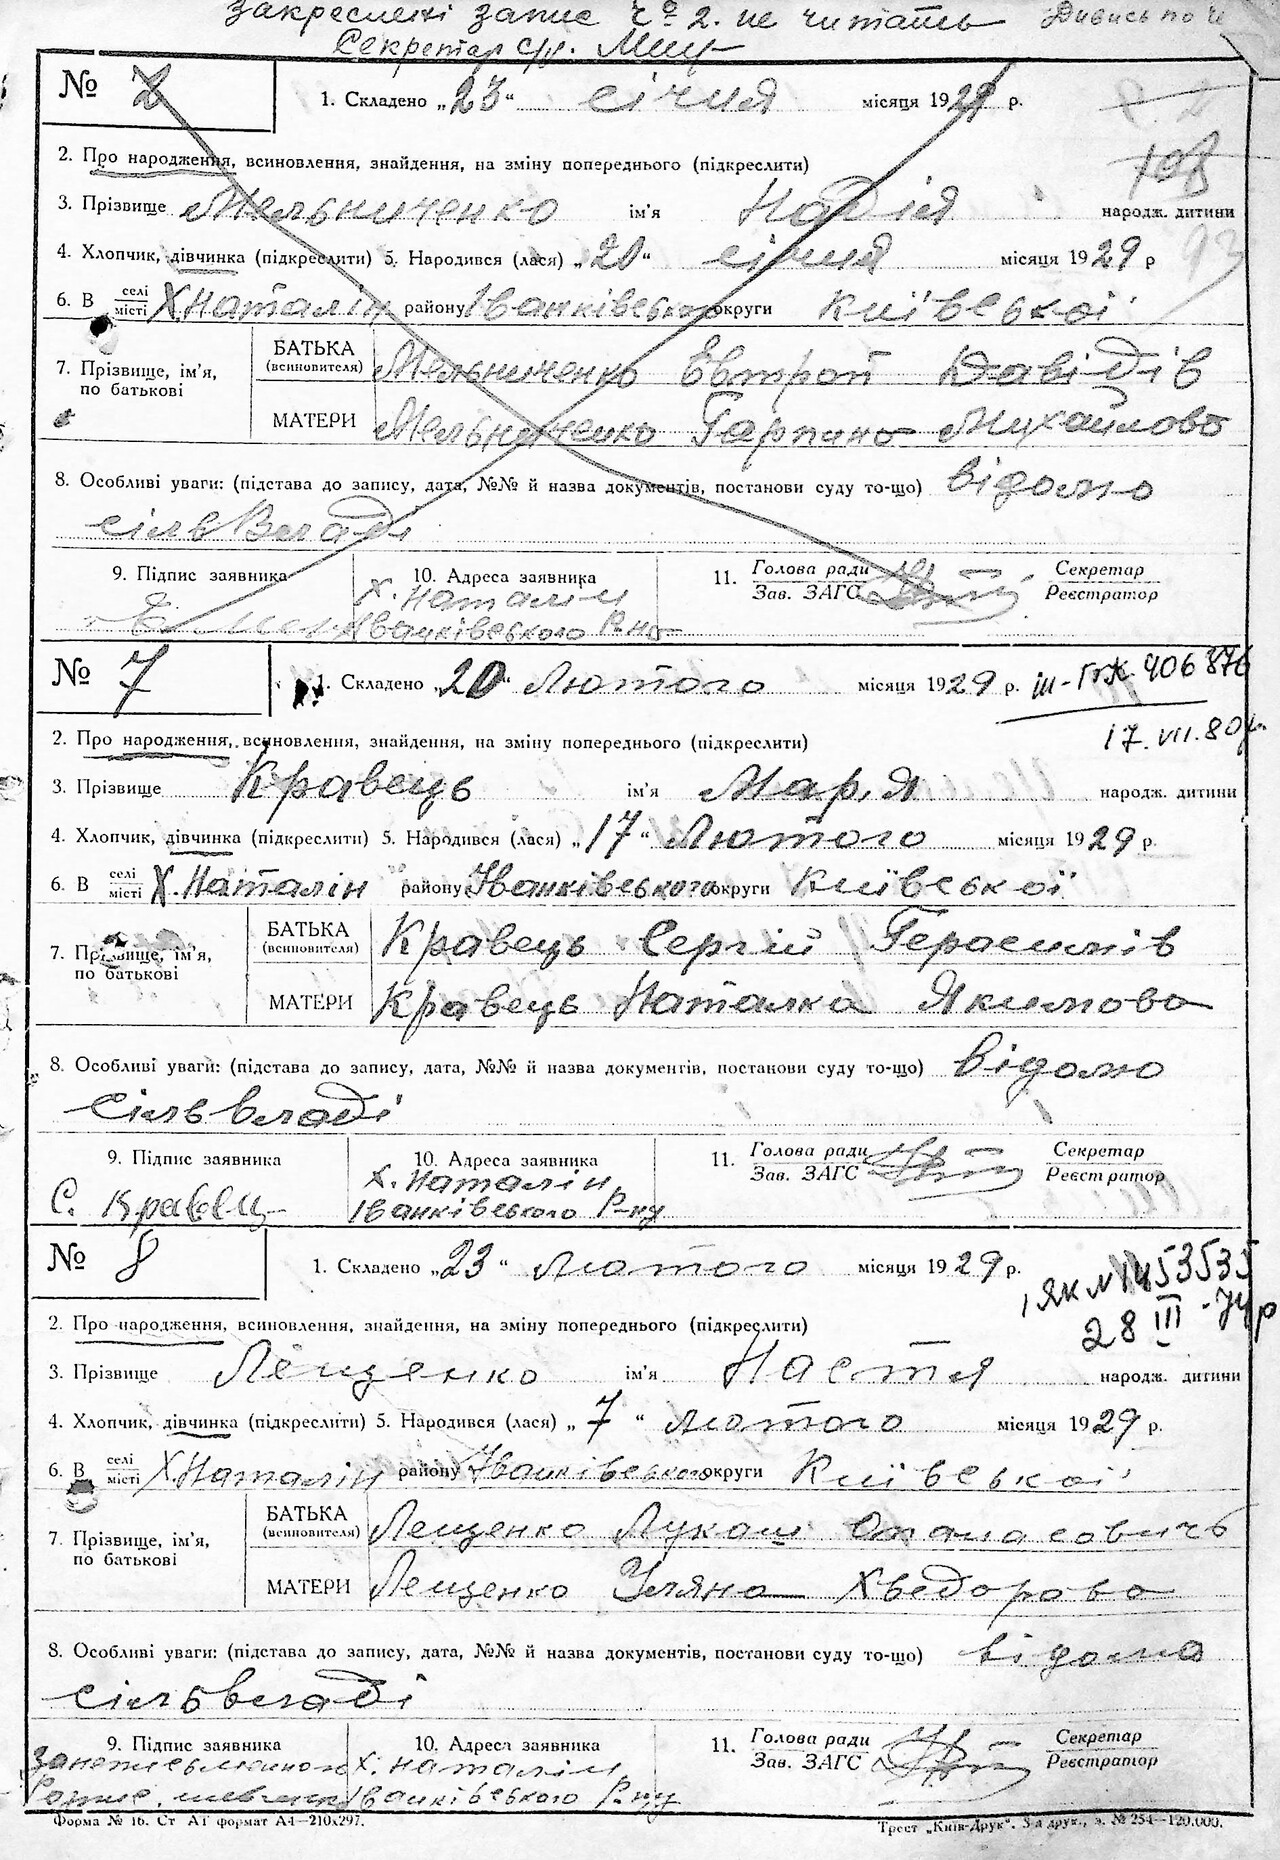 Закреслені запис ч 2. не читать Дивись по
Секретар с/р.
№ 2
1. Складено „23“ січня місяця 1929 р.
2. Про народження, всиновлення, знайдення, на зміну попереднього (підкреслити)
108
3. Прізвище Мельниченко ім’я Надія народж. дитини
4. Хлопчик, дівчинка (підкреслити) 5. Народився (лася) „20“ січня місяця 1929 р
93
6. В селі місті Х.Наталін району Іванківського округи Київської
7. Прізвище, ім’я, по батькові
БАТЬКА (всиновителя) Мельниченко Евтроп Давідів
МАТЕРИ Мельниченко Гарпина Михайлова
8. Особливі уваги: (підстава до запису, дата, №№ й назва документів, постанови суду то-що) відомо
сільвладі
9. Підпис заявника 10. Адреса заявника 11. Голова ради Зав. ЗАГС Секретар Реєстратор
Х. Наталін
Іванківського Р-ну
№ 7
1. Складено „20“ Лютого місяця 1929 р. III-ГЖ 406876
17.VII.80р.
2. Про народження, всиновлення, знайдення, на зміну попереднього (підкреслити)
3. Прізвище Кравець ім’я Марія народж. дитини
4. Хлопчик, дівчинка (підкреслити) 5. Народився (лася) „17“ Лютого місяця 1929 р.
6. В селі місті Х.Наталін району Іванківського округи Київської
7. Прізвище, ім’я, по батькові
БАТЬКА (всиновителя) Кравець Сергій Герасимів
МАТЕРИ Кравець Наталка Якимова
8. Особливі уваги: (підстава до запису, дата, №№ й назва документів, постанови суду то-що) відомо
сільвладі
9. Підпис заявника 10. Адреса заявника 11. Голова ради Зав. ЗАГС Секретар Реєстратор
С. Кравец
Х. Наталін,
Іванківського Р-ну
№ 8
1. Складено „23“ лютого місяця 1929 р.
28 III
2. Про народження, всиновлення, знайдення, на зміну попереднього (підкреслити)
3. Прізвище Лещенко ім’я Настя народж. дитини
4. Хлопчик, дівчинка (підкреслити) 5. Народився (лася) „7“ лютого місяця 1929 р.
6. В селі місті Х.Наталін району Іванківського округи Київської
7. Прізвище, ім’я, по батькові
БАТЬКА (всиновителя) Лещенко Лукаш Опанасовичь
МАТЕРИ Лещенко Уляна Хведорова
8. Особливі уваги: (підстава до запису, дата, №№ й назва документів, постанови суду то-що) відома
сільвладі
9. Підпис заявника 10. Адреса заявника 11. Голова ради Зав. ЗАГС Секретар Реєстратор
Х. Наталін
Іванківського Р-ну
Форма № 16. Ст А1 формат А4—210х297.
Трест „Київ-Друк“. 3-а друк., з. № 254—120.000.